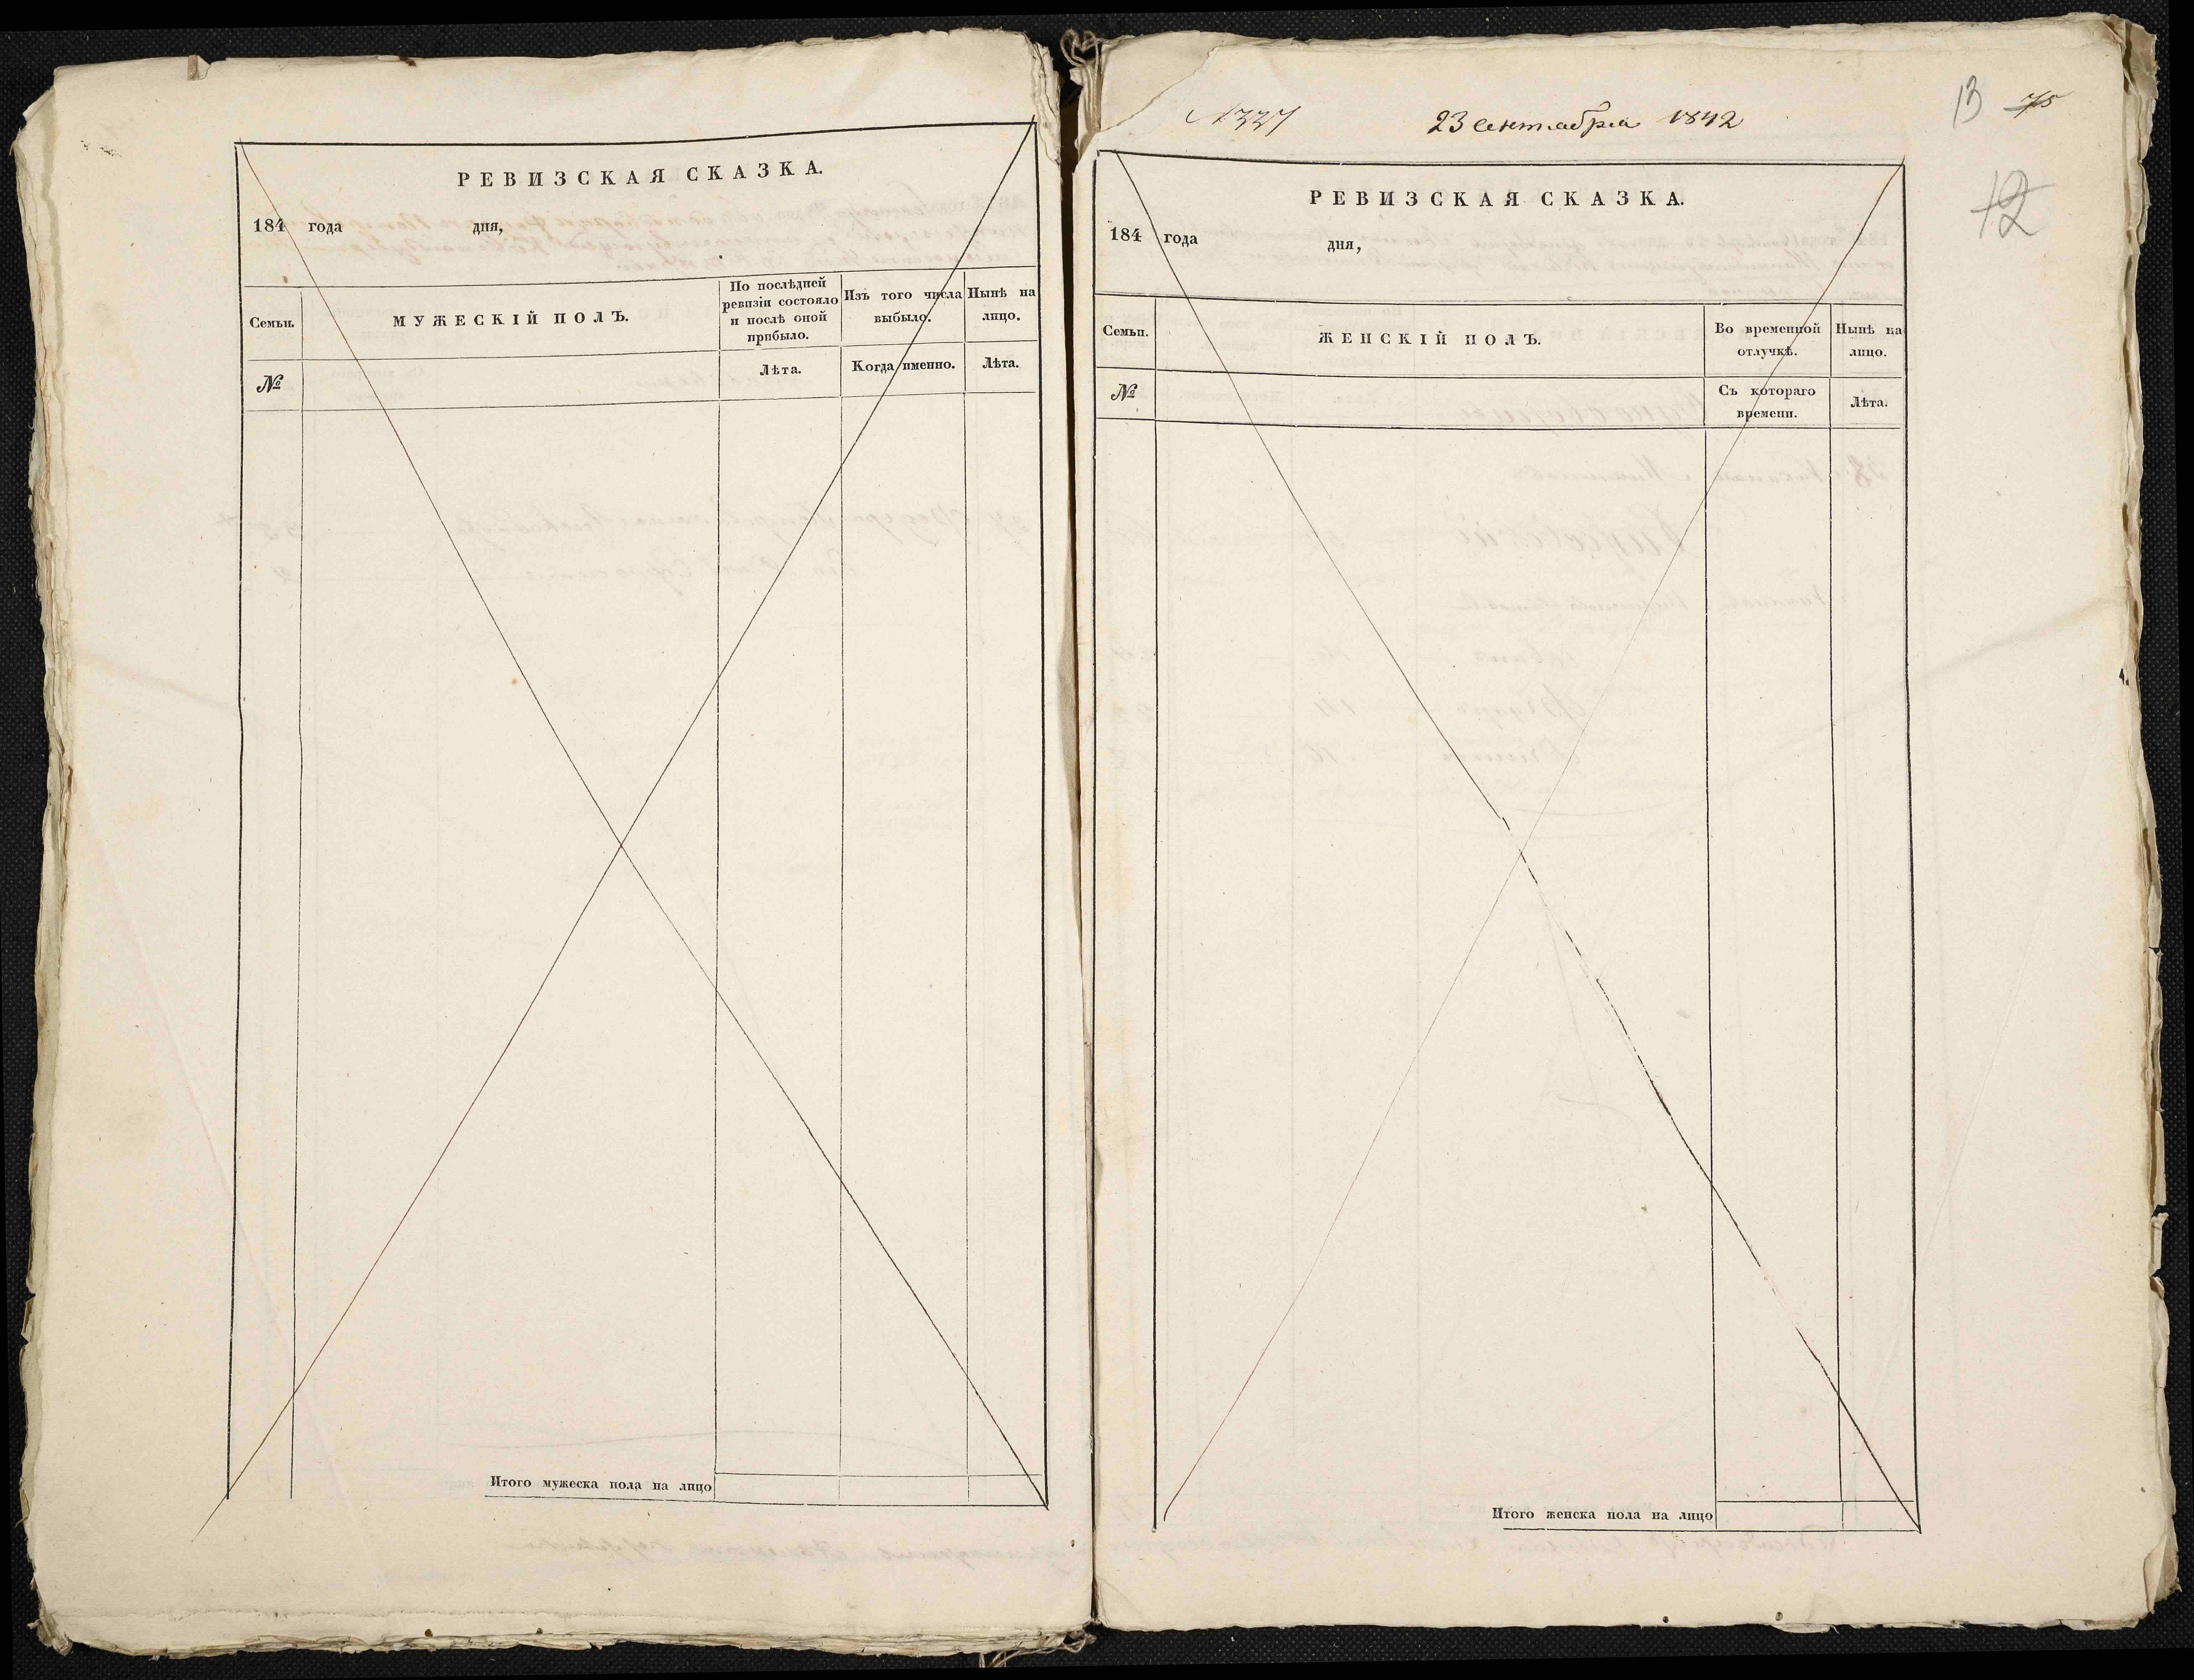 РЕВИЗСКАЯ СКАЗКА.
184 года дня,
Семьи.
МУЖЕСКІЙ ПОЛЪ.
По послѣдней
ревизіи состояло
и послѣ оной
прибыло.
Изъ того числа
выбыло.
Нынѣ на
лицо.
№
Лѣта.
Когда именно.
Лѣта.
Итого мужеска пола на лицо
23 сентября 1842
13 75
12
РЕВИЗСКАЯ СКАЗКА.
184 года дня,
Семьи.
ЖЕНСКІЙ ПОЛЪ.
Во временной
отлучкѣ.
Нынѣ на
лицо.
№
Съ котораго
времени.
Лѣта.
Итого женска пола на лицо